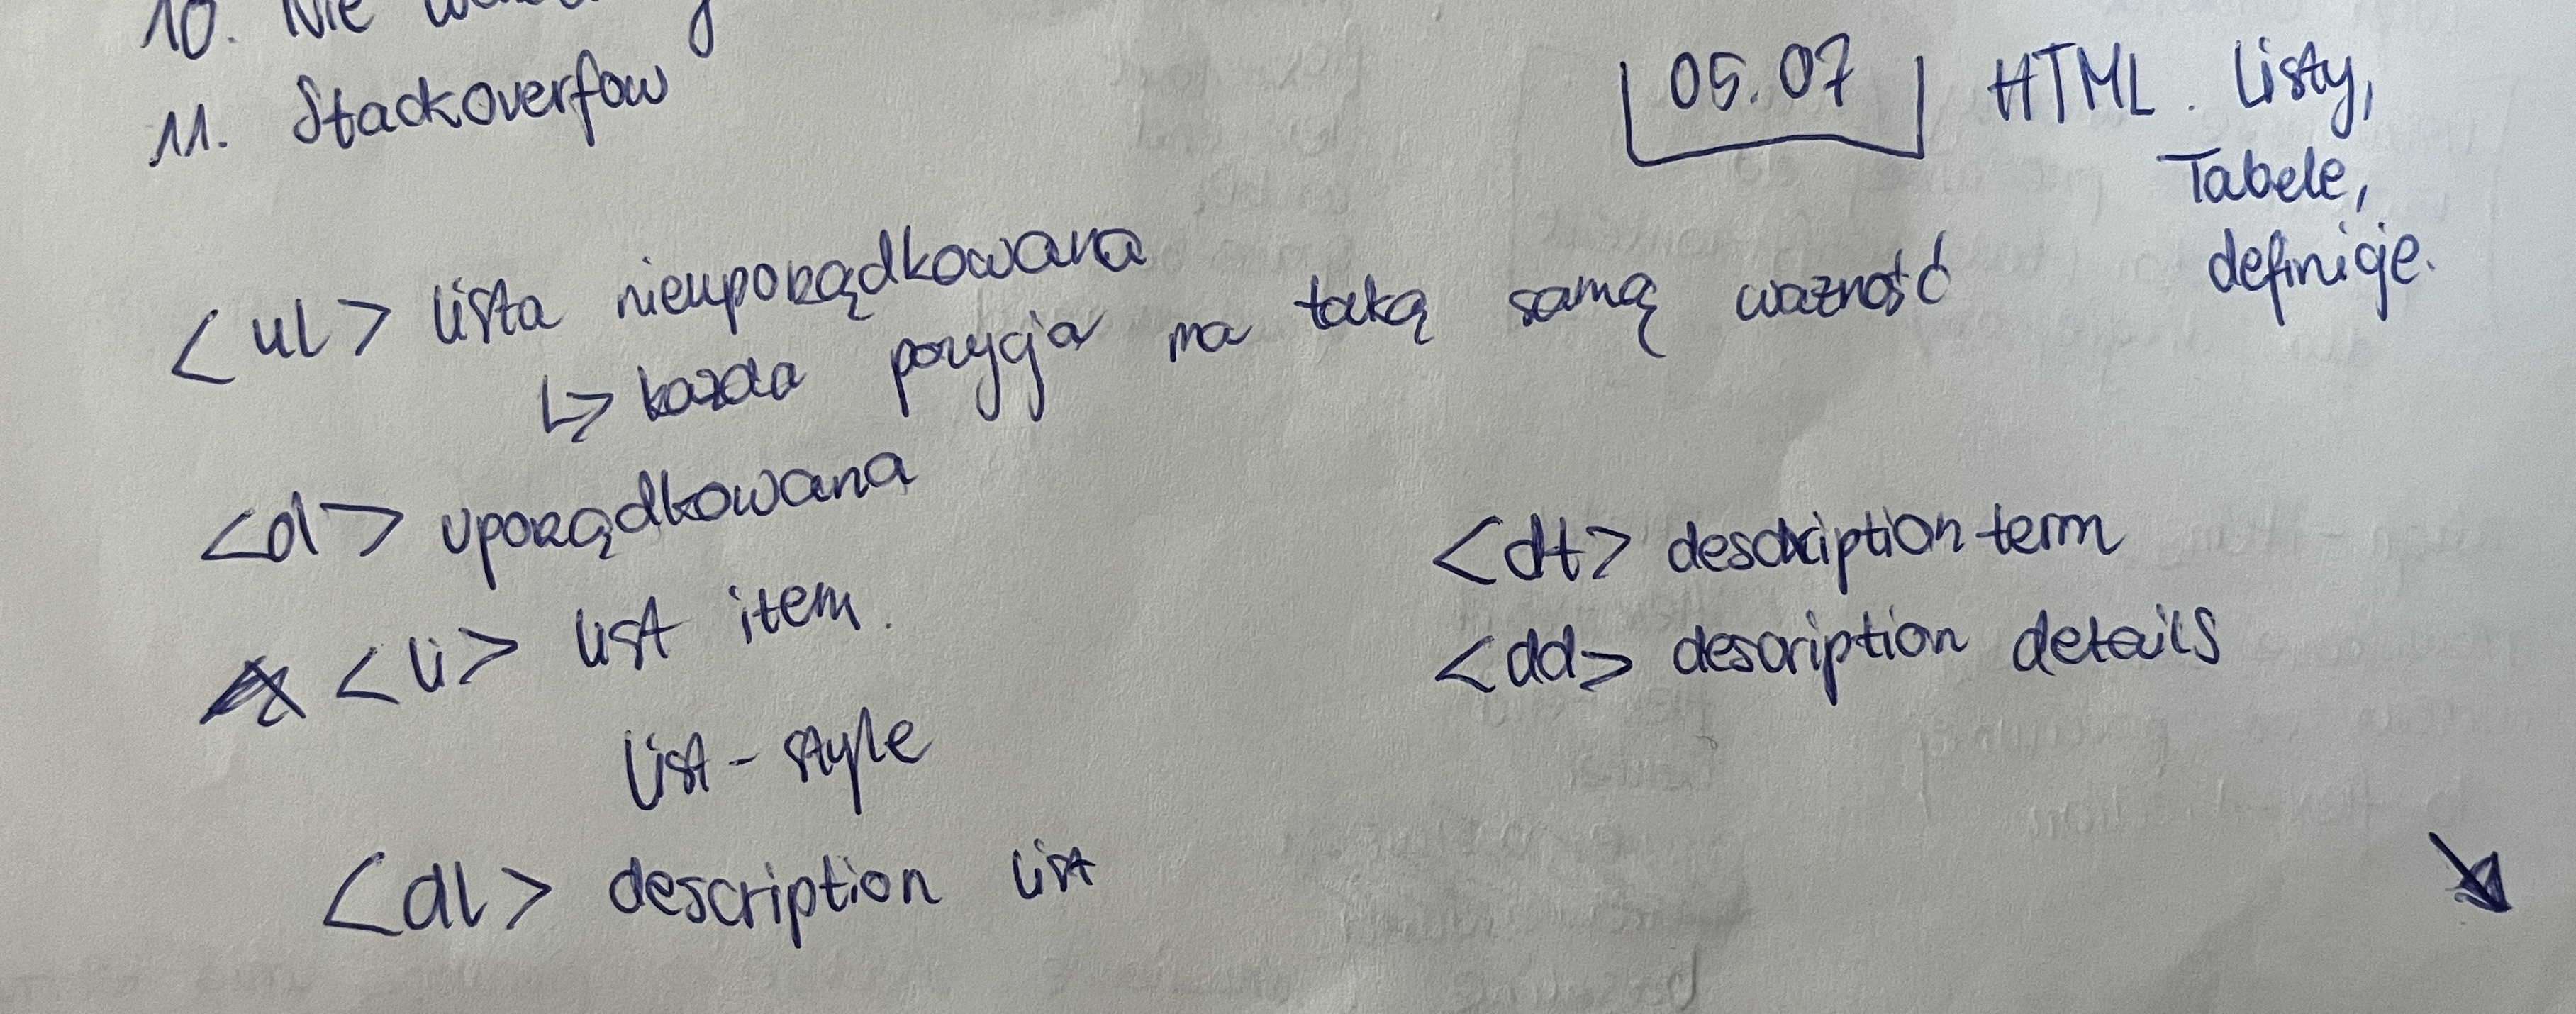 10. Nie
11. Stackoverfow
05.07 HTML. Listy,
Tabele,
definicje.
<ul> lista nieuporządkowana
↳ każda pozycja ma taką samą ważność
<ol> uporządkowana
<li> list item.
list-style
<dl> description list
<dt> description term
<dd> description details